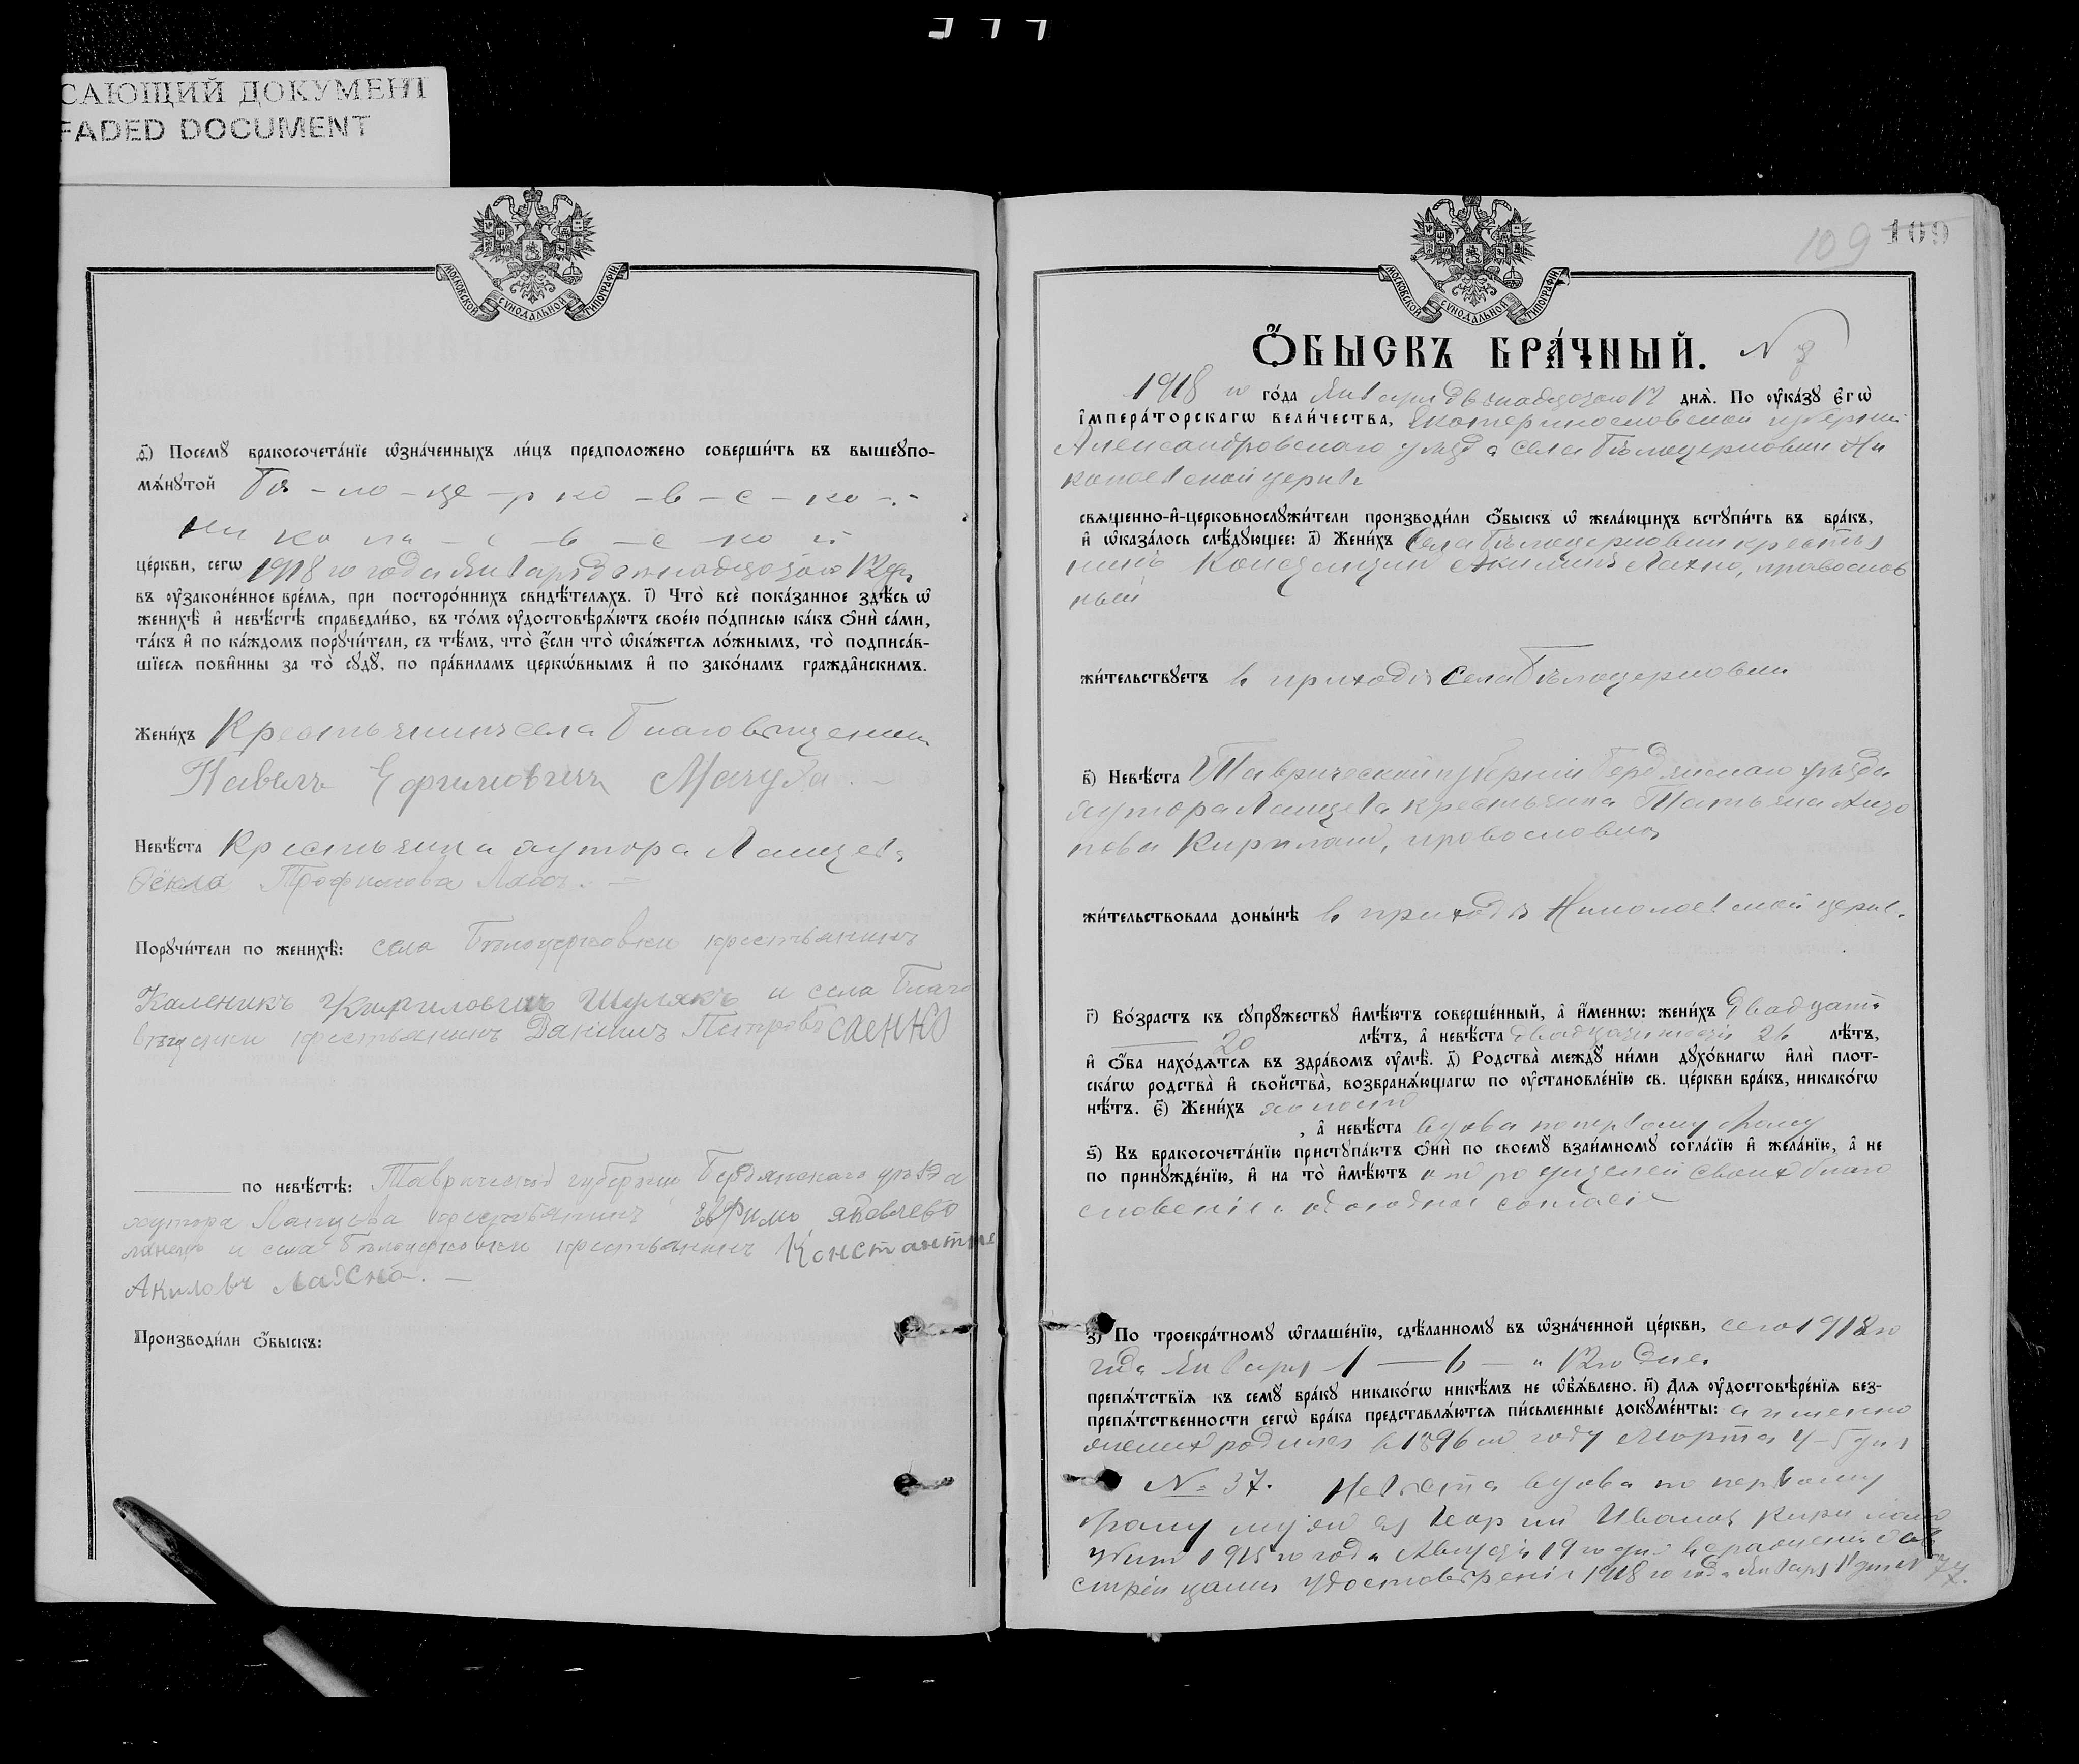 САЮЩИЙ ДОКУМЕНТ
FADED DOCUMENT
МОСКОВСКОЙ СѴНОДАЛЬНОЙ ТИПОГРАФІИ
ѳ҃) Посемꙋ̀ бракосочета́нїе ѡ҆зна́ченныхъ ли́цъ предположено соверши́ть въ вышеꙋпо-
мѧ́нꙋтой Бѣ-ло-це-р ко-в-с-ко-й
Ни ко ла-е-в-с-ко й
це́ркви, сегѡ̀ 1918 го года Января двѣнадцатого 12 дня
въ ᲂу҆законе́нное вре́мѧ, при посторо́ннихъ свидѣ́телѧхъ. і҃) Что̀ всѐ пока́занное здѣ́сь ѡ҆
женихѣ̀ и҆ невѣ́стѣ справедли́во, въ то́мъ ᲂу҆достовѣрѧ́ютъ свое́ю по́дписью ка́къ ѻ҆нѝ са́ми,
та́къ и҆ по ка́ждомъ порꙋчи́тели, съ тѣ́мъ, что̀ є҆́сли что̀ ѡ҆ка́жетсѧ ло́жнымъ, то̀ подписа́в-
шїесѧ пови́нны за то̀ сꙋдꙋ̀, по пра́виламъ церкѡ́внымъ и҆ по зако́намъ гражда̂нскимъ.
Жени́хъ Крестьянинъ села Благовѣщенки
Павелъ Ефимовичъ Мачула.
Невѣ́ста Крестьянка хутора Ланцева
Ѳекла Трофимова
Порꙋчи́тели по женихѣ̀: села Бѣлоцерковки крестьянинъ
Каленикъ Кириловичъ Шулякъ и села Благо
вѣщенки крестьянинъ Даніилъ Петровъ
по невѣ́стѣ: Таврической губерніи Бердянского уѣзда
хутора Ланцева крестьянинъ Ефимъ Яковлевъ
и села Бѣлоцерковки крестьянинъ Константинъ
Акиловъ Лахно.
Производи́ли ѻ҆́быскъ:
109 109
МОСКОВСКОЙ СѴНОДАЛЬНОЙ ТИПОГРАФІИ
Ѻ҆́БЫСКЪ БРА́ЧНЫЙ. N 8
1918 го го́да Января двѣнадцатого 12 днѧ̀. По ᲂу҆ка́зꙋ є҆гѡ̀
і҆мпера́торскагѡ вели́чества, Екатеринославской губерніи
Александровского уѣзда села Бѣлоцерковки Ни
колаевской церкви
свѧще́нно-и҆-церковнослꙋжи́тели производи́ли ѻ҆́быскъ ѡ҆ жела́ющихъ встꙋпи́ть въ бра́къ,
и҆ ѡ҆каза́лось слѣ́дꙋющее: а҃) Жени́хъ села Бѣлоцерковки крестья
нинъ Акилинъ Лахно, православ
ный
жи́тельствꙋетъ въ приходѣ села Бѣлоцерковки
в҃) Невѣ́ста Таврической губерніи Бердянского уѣзда
хутора Ланцева крестьянка Татьяна
нова православная
жи́тельствовала доны́нѣ въ приходѣ Николаевской церкви.
г҃) Во́зрастъ къ сꙋпрꙋ́жествꙋ и҆мѣ́ютъ соверше́нный, а҆ и҆́меннѡ: жени́хъ двадцать
20 лѣ́тъ, а҆ невѣ́ста двадцать шести 26 лѣ́тъ,
и҆ ѻ҆́ба нахо́дѧтсѧ въ здра́вомъ ᲂу҆мѣ̀. д҃) Родства̀ междꙋ̀ ни́ми дꙋхо́внагѡ и҆лѝ плот-
ска́гѡ родства̀ и҆ свойства̀, возбранѧ́ющагѡ по ᲂу҆становле́нїю св. це́ркви бра́къ, никако́гѡ
нѣ́тъ. є҃) Жени́хъ холостъ
, а҆ невѣ́ста вдова по первому браку
ѕ҃) Къ бракосочета́нїю пристꙋпа́ютъ ѻ҆нѝ по своемꙋ̀ взаи́мномꙋ согла́сїю и҆ жела́нїю, а҆ не
по принꙋжде́нїю, и҆ на то̀ и҆мѣ́ютъ отъ родителей своихъ благо
словеніе и обоюдное согласіе
з҃) По троекра́тномꙋ ѡ҆глаше́нїю, сдѣ́ланномꙋ въ ѡ҆зна́ченной це́ркви, сего 1918 го
года Января 1 — 6 — и 12 го дня.
препѧ́тствїѧ къ семꙋ̀ бра́кꙋ никако́гѡ никѣ́мъ не ѡ҆б̾ѧ́влено. и҃) Длѧ ᲂу҆достовѣре́нїѧ без-
препѧ́тственности сегѡ̀ бра́ка представлѧ́ютсѧ пи́сьменные докꙋме́нты: а именно
женихъ родился въ 1896 мъ году Марта 4-5 дня
№ 37. Невѣста вдова по первому
браку мужъ ея Георгій Ивановъ
убитъ 1915 го года Августа 19 го дня въ сраженіи съ ав
стрійцами удостовѣреніе 1918 го года Января 11 дня № 77.